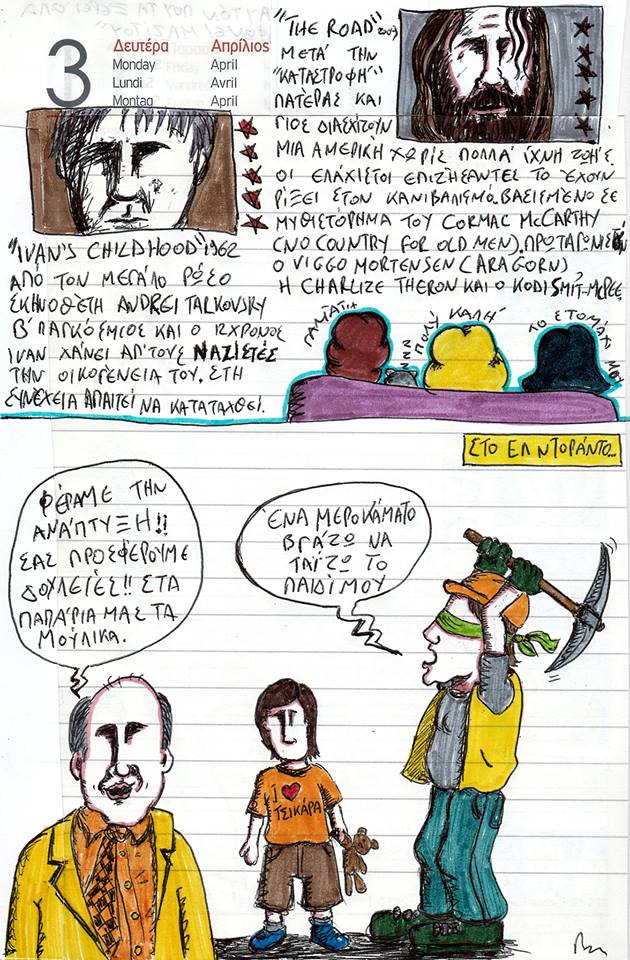 3
Δευτέρα Απρίλιος
Monday April
Lundi Avril
Montag April
"THE ROAD" 2009
ΜΕΤΆ ΤΗΝ
"ΚΑΤΑΣΤΡΟΦΗ"
ΠΑΤΕΡΑΣ ΚΑΙ
ΓΙΟΣ ΔΙΑΣΧΙΖΟΥΝ
ΜΙΑ ΑΜΕΡΙΚΗ ΧΩΡΙΣ ΠΟΛΛΆ ΊΧΝΗ ΖΩΉΣ.
ΟΙ ΕΛΑΧΙΣΤΟΙ ΕΠΙΖΗΣΑΝΤΕΣ ΤΟ ΈΧΟΥΝ
ΡΙΞΕΙ ΣΤΟΝ ΚΑΝΙΒΑΛΙΣΜΟ. ΒΑΣΙΣΜΕΝΟ ΣΕ
ΜΥΘΙΣΤΟΡΗΜΑ ΤΟΥ CORMAC McCARTHY
(NO COUNTRY FOR OLD MEN), ΠΡΩΤΑΓΩΝΙΣΤ
Ο VIGGO MORTENSEN (ARAGORN),
Η CHARLIZE THERON ΚΑΙ Ο KODI SMIT-McPEE.
"IVAN'S CHILDHOOD" 1962
ΑΠΌ ΤΟΝ ΜΕΓΑΛΟ ΡΩΣΟ
ΣΚΗΝΟΘΕΤΗ ANDREI TALKOVSKY
Β' ΠΑΓΚΟΣΜΙΟΣ ΚΑΙ Ο 12ΧΡΟΝΟΣ
IVAN ΧΆΝΕΙ ΑΠ'ΤΟΥΣ ΝΑΖΙΣΤΕΣ
ΤΗΝ ΟΙΚΟΓΕΝΕΙΑ ΤΟΥ. ΣΤΗ
ΣΥΝΕΧΕΙΑ ΑΠΑΙΤΕΙ ΝΑ ΚΑΤΑΤΑΧΘΕΙ.
ΠΟΛΎ ΚΑΛΉ
ΤΟ ΣΤΟΜΑΧΙ ΜΟΥ
ΣΤΟ ΕΛ ΝΤΟΡΆΝΤΟ...
ΦΕΡΑΜΕ ΤΗΝ
ΑΝΆΠΤΥΞΗ!!
ΣΑΣ ΠΡΟΣΦΕΡΟΥΜΕ
ΔΟΥΛΕΙΈΣ!! ΣΤΑ
ΠΑΠΑΡΙΑ ΜΑΣ ΤΑ
ΜΟΥΛΙΚΑ.
ΈΝΑ ΜΕΡΟΚΑΜΑΤΟ
ΒΓΆΖΩ ΝΑ
ΤΑΪΖΩ ΤΟ
ΠΑΙΔΙ ΜΟΥ
I ❤
ΤΣΙΚΑΡΑ